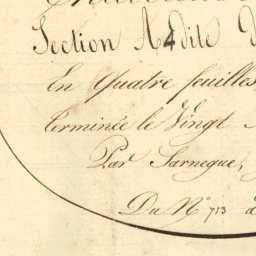 Section A4 dite
En Quatre feuilles
terminée le Vingt
Par Sarnegue,
Du N° 713 à